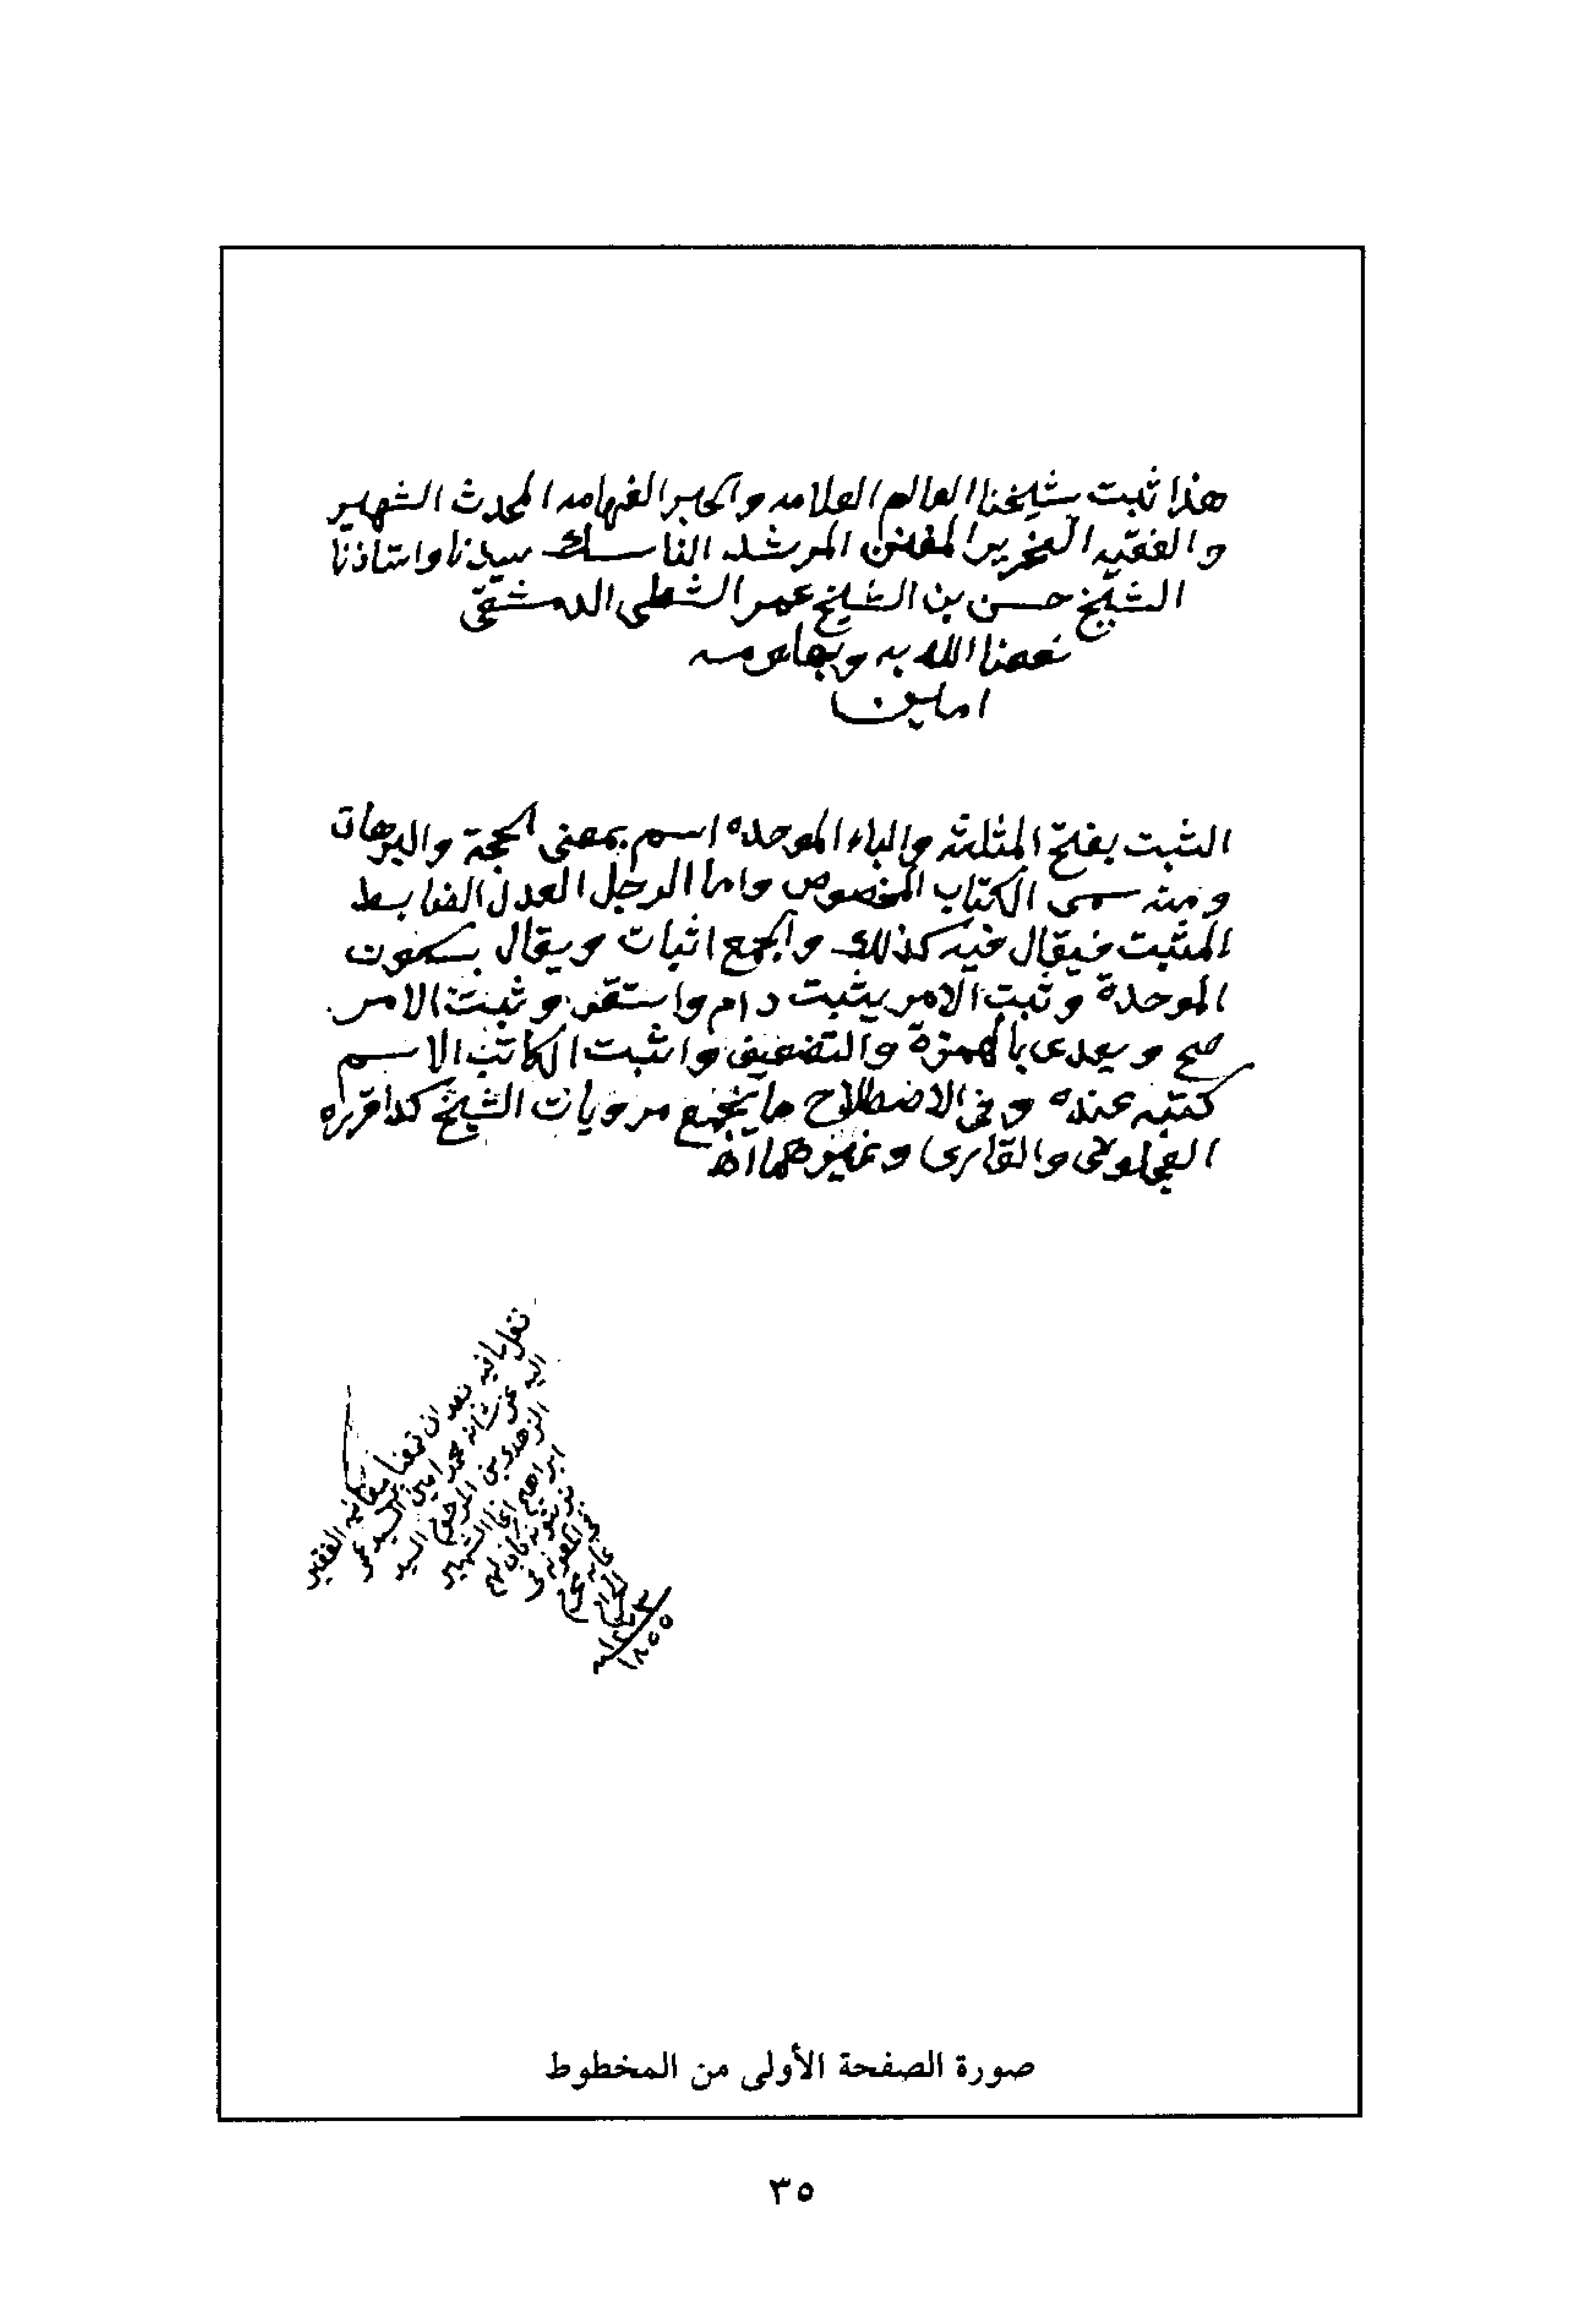 هذا ثبت شيخنا العالم العلامه والحبر الفهامه المحدث الشهير
والفقيه النحرير المفنن المرشد الناسك سيدنا واستاذنا
الشيخ حسن بن الشيخ عمر الشطي الدمشقي
نفعنا الله به وبعلومه
امين
الثبت بفتح المثلثه والباء الموحده اسم بمعنى الحجة والبرهان
ومنه سمى الكتاب المخصوص واما الرجل العدل الضابط
المثبت فيقال فيه كذلك والجمع اثبات ويقال بسكون
الموحدة وثبت الامر يثبت دام واستقر وثبت الامر
صح ويعدى بالهمزة والتضعيف واثبت الكاتب الاسم
كتبه عنده وفي الاصطلاح ما يجمع مرويات الشيخ كذا قرره
العجلوني والقارى وغيرهما اه
الفقير
محمد امين السيد
صورة الصفحة الأولى من المخطوط
٣٥